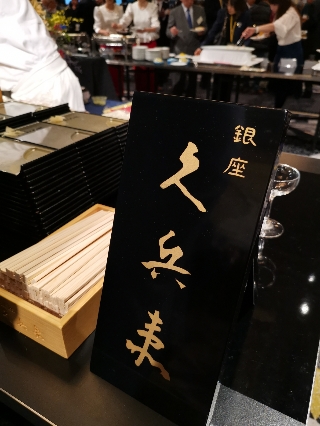 銀座
久兵衛